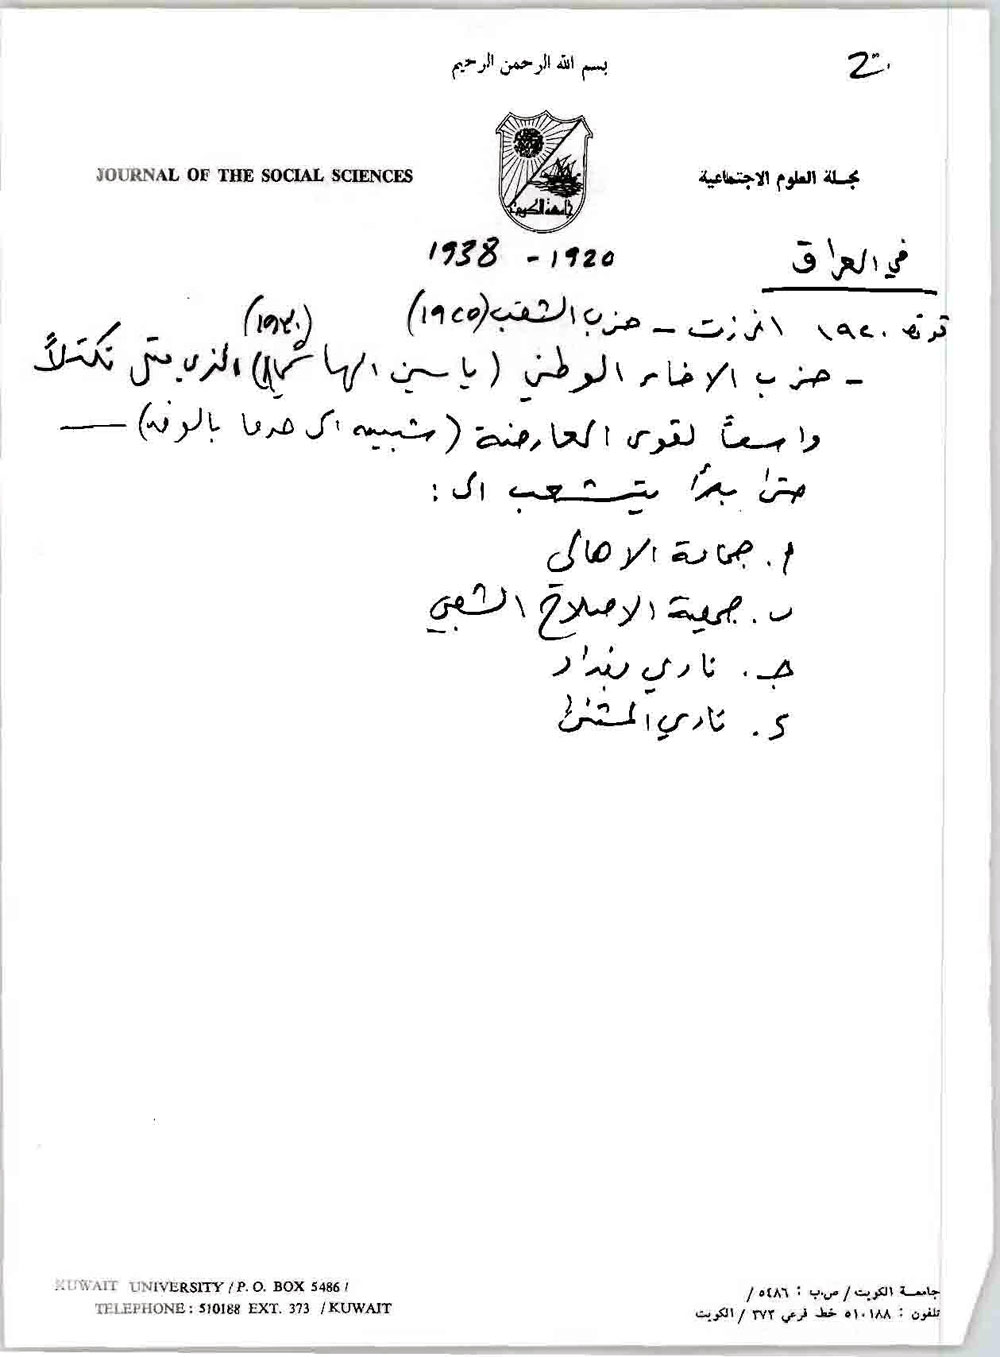 بسم الله الرحمن الرحيم
2
JOURNAL OF THE SOCIAL SCIENCES
مجلة العلوم الاجتماعية
جامعة الكويت
في العراق 1920 - 1938
ثورة ١٩٢٠ افرزت - حزب الشعب (١٩٢٥)
(١٩٣٠)
- حزب الاخاء الوطني (ياسين الهاشمي) الذي بقي تكتلاً
واسعاً لقوى المعارضة (شبيه الى حد ما بالوفد) —
حتى بدأ يتشعب الى :
أ. جماعة الاهالي
ب. جمعية الاصلاح الشعبي
جـ. نادي بغداد
د. نادي المثنى
KUWAIT UNIVERSITY / P. O. BOX 5486 /
TELEPHONE : 510188 EXT. 373 / KUWAIT
جامعة الكويت / ص.ب : ٥٤٨٦ /
تلفون : ٥١٠١٨٨ خط فرعي ٣٧٣ / الكويت